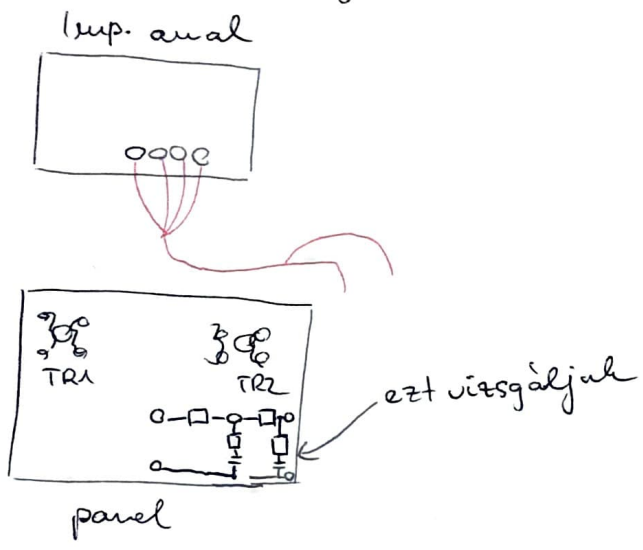 Imp. anal
TR1
TR2
ezt vizsgáljuk
panel